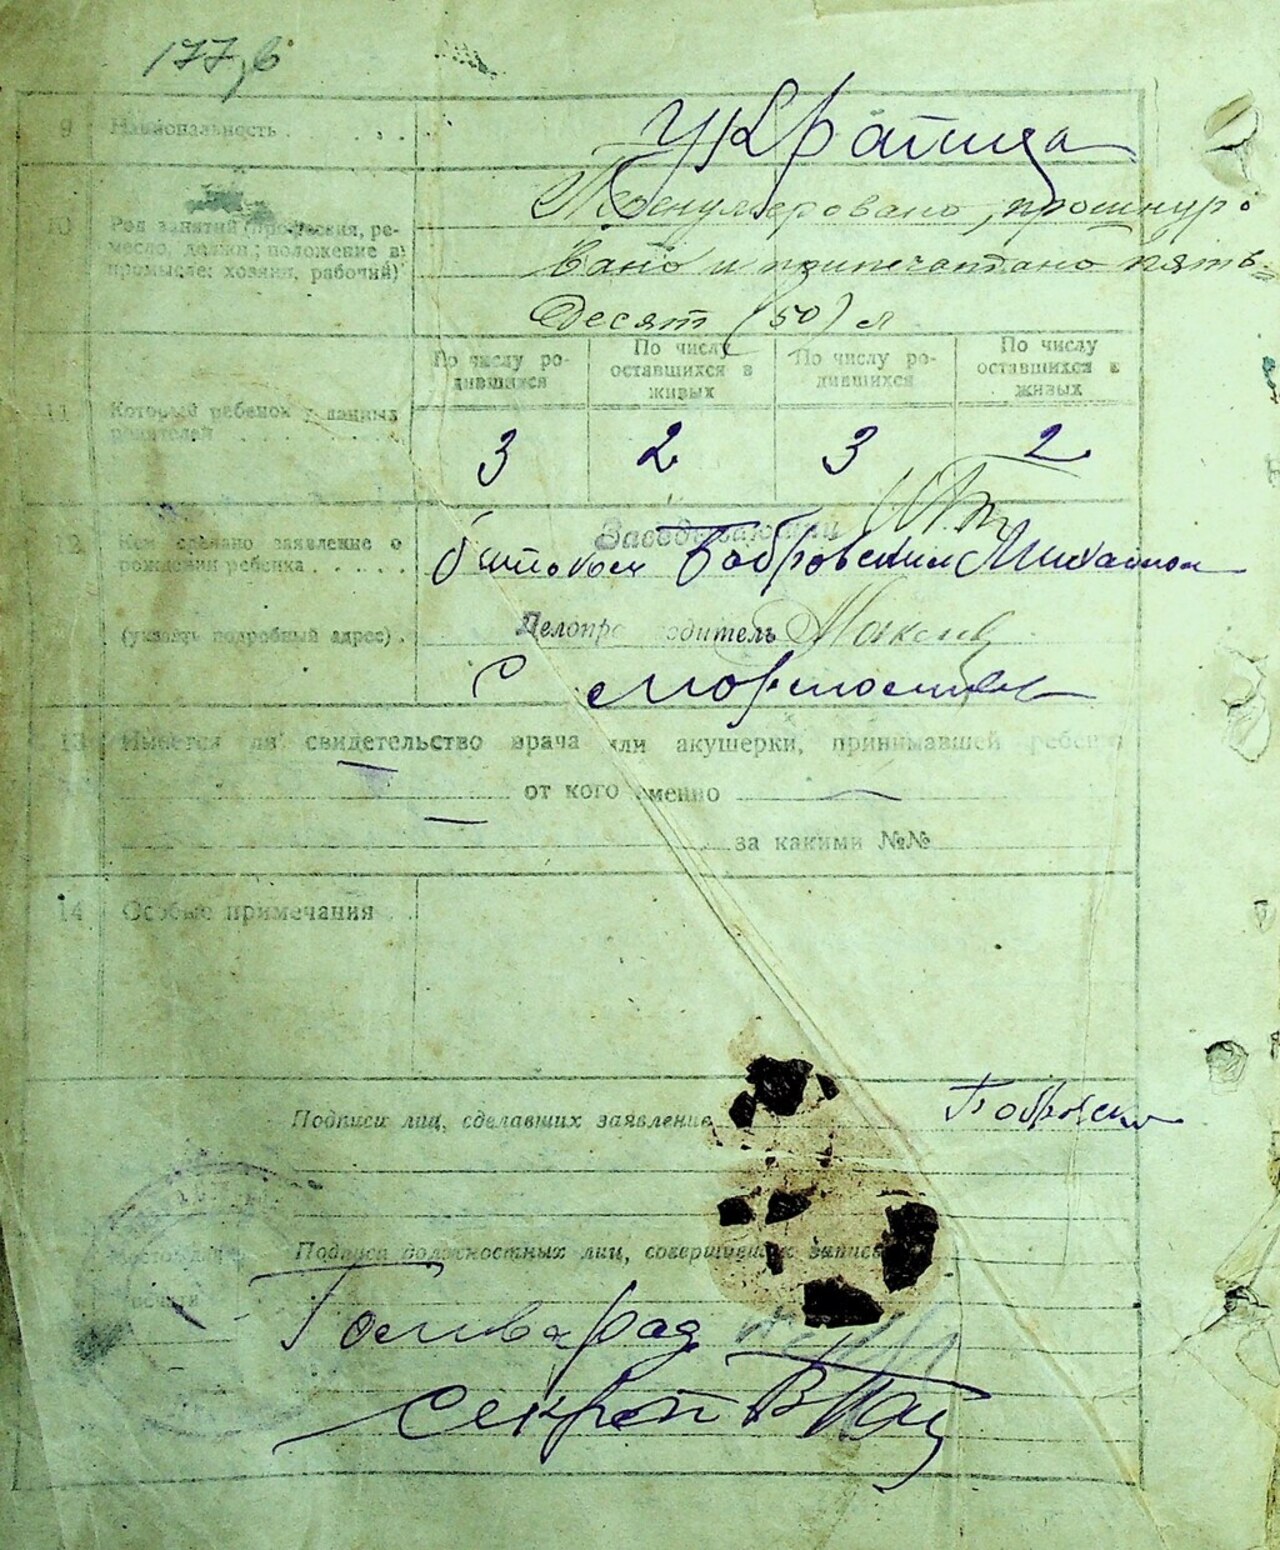 177,6
9 Национальность . . . . . . украинца
10 Род занятий (профессия, ре-
месло, должн.; положение в
промысле: хозяин, рабочий)
Пронумеровано, прошнуро
вано и припечатано пять=
десят (50) л
11 Который ребенок у данных
родителей . . . . . . . .
По числу ро-
дившихся
По числу
оставшихся в
живых
По числу ро-
дившихся
По числу
оставшихся в
живых
3 2 3 2
12 Кем сделано заявление о
рождении ребенка . . . . .
(указать подробный адрес) .
Заведывающий
батьком Бобровским Михайлом
Делопроизводитель
С
13 Имеется ли свидетельство врача или акушерки, принимавшей ребенка
— от кого именно —
— за какими №№
14 Особые примечания . .
Подписи лиц, сделавших заявление Бобровски
Подписи должностных лиц, совершивших запись
Голова рад
секрет